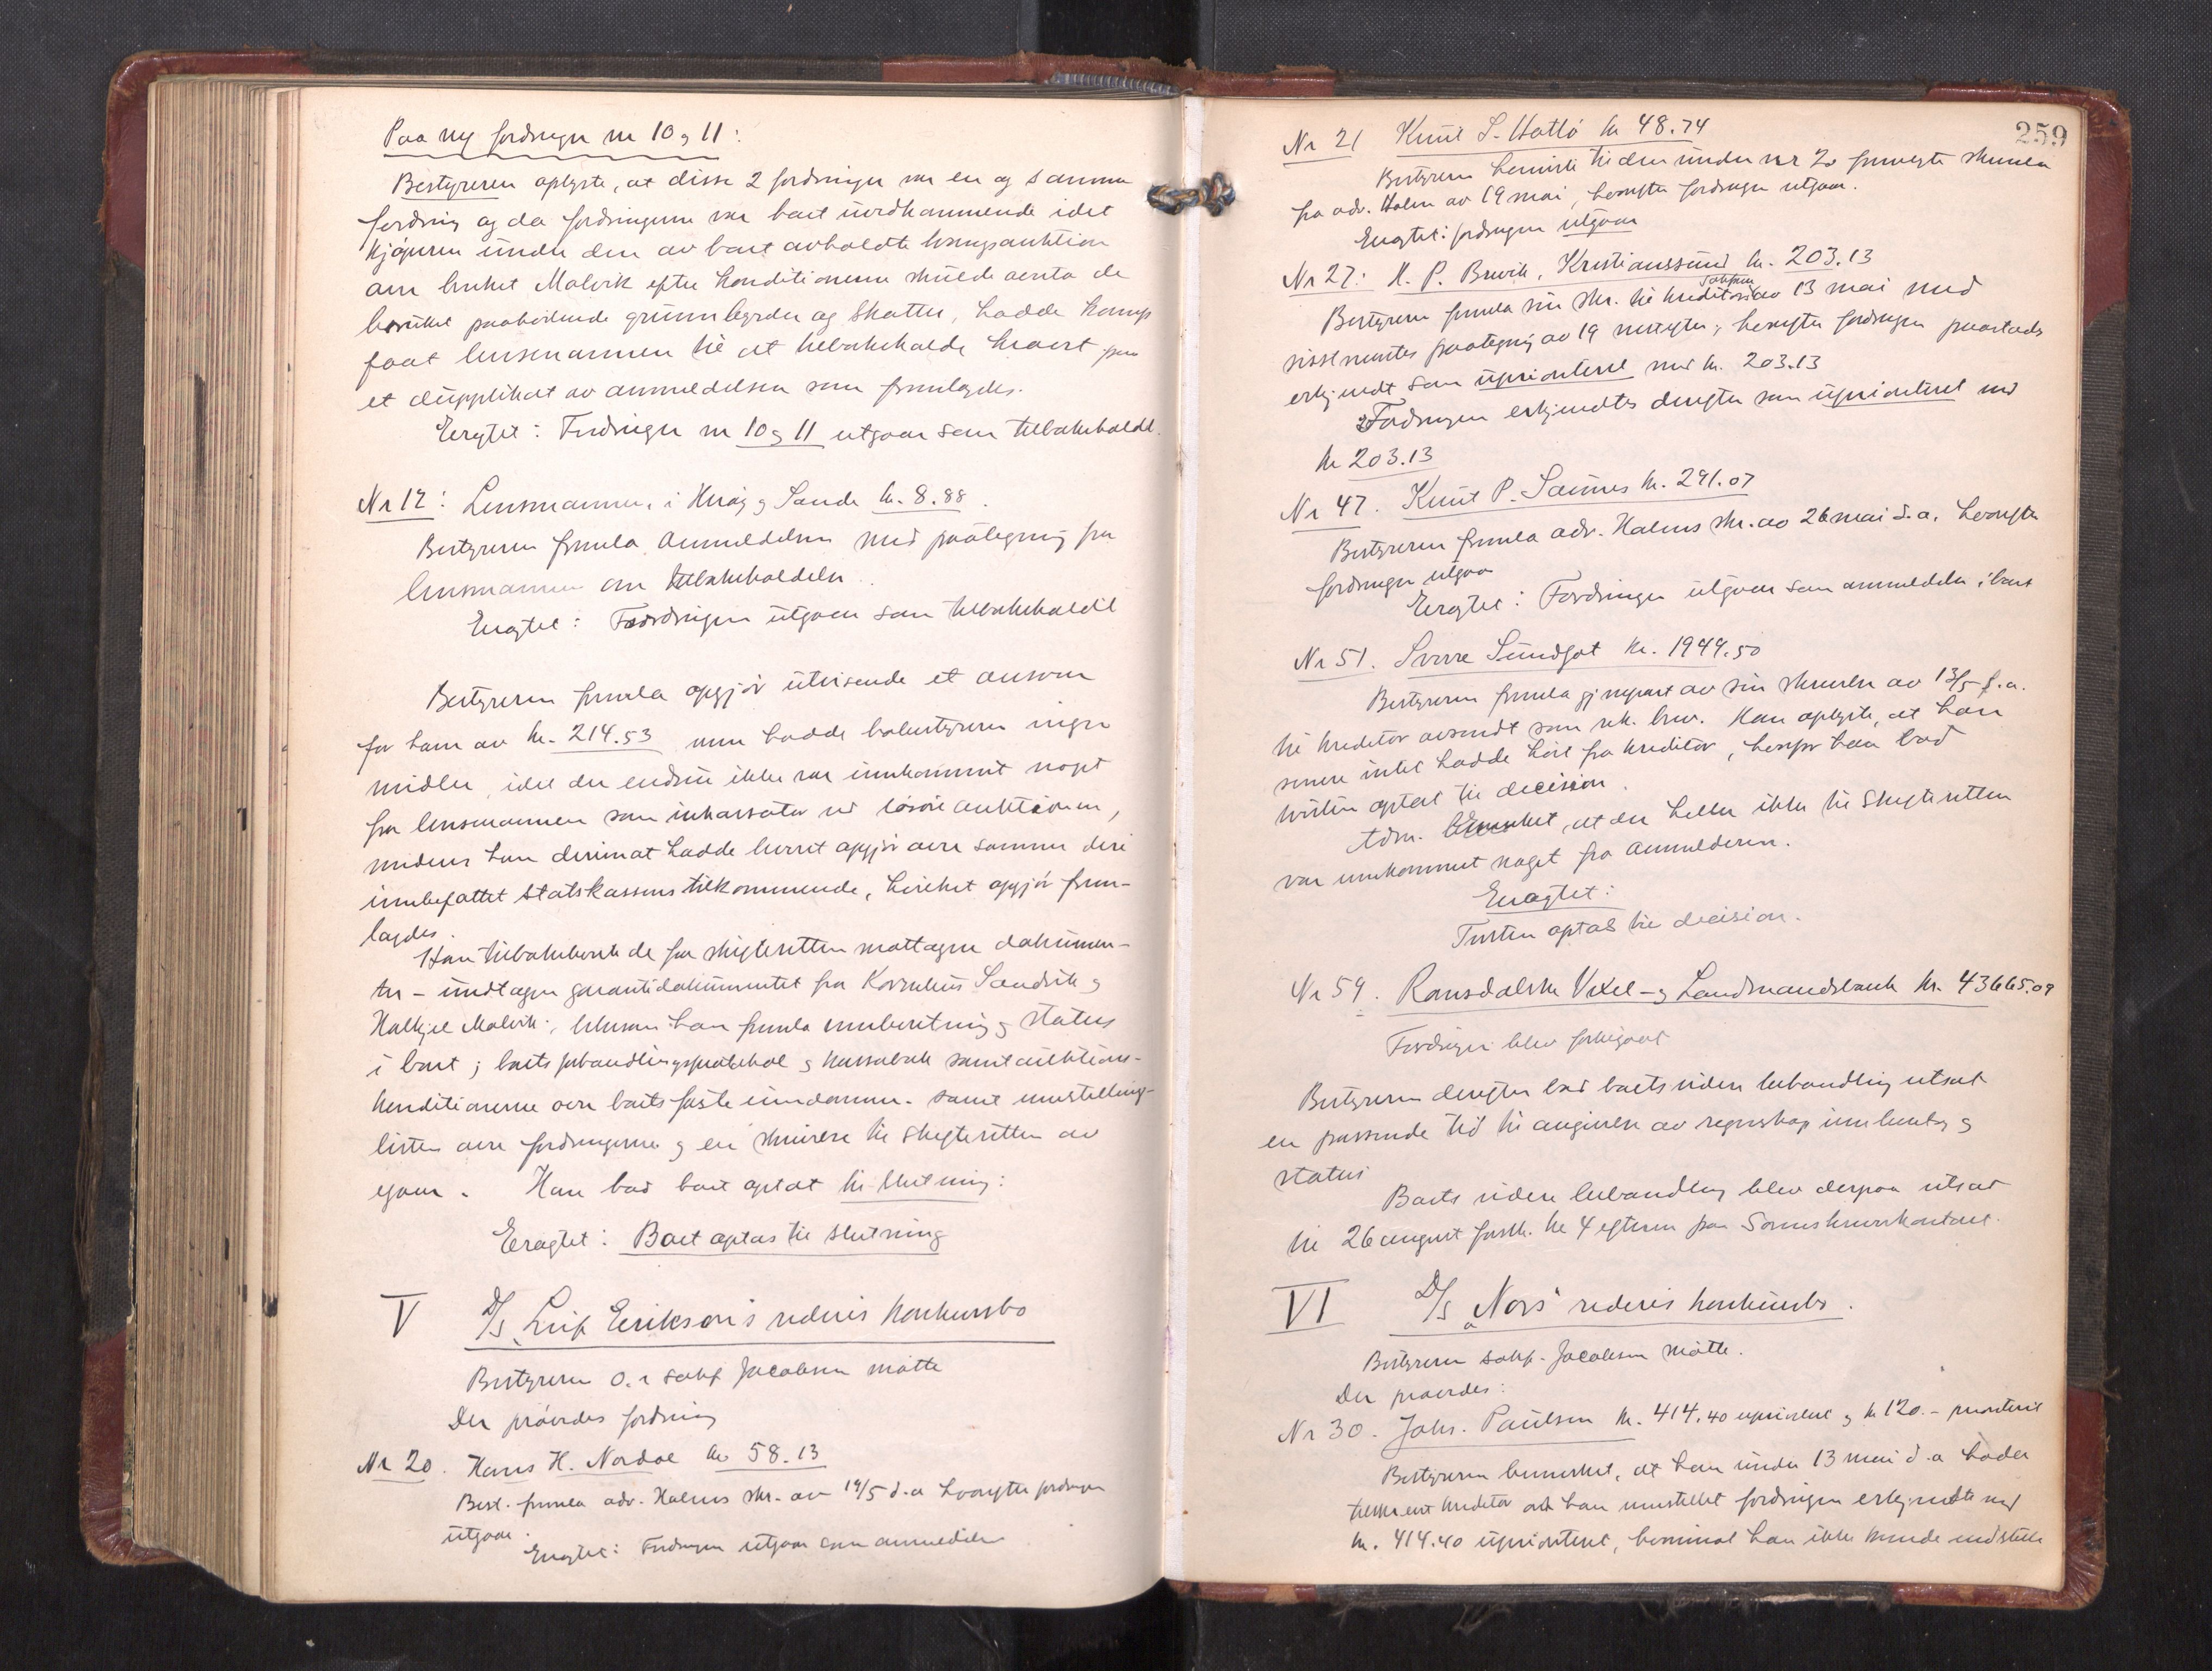 Paa ny fordringer nr 10 og 11:
Bestyreren oplyste, at disse 2 fordringer var en og samme
fordring og da fordringerne var boet uvedkommende idet
kjøperen under den av boet avholdte tvangsauktion
over bruket Malvik efter konditionerne skulde overta de
bruket paahvilende grunnbyrder og skatter, hadde
faat lensmannen til at tilbakekalde kravet paa
et dupplikat av anmeldelsen som fremlagdes.
Eragtet: Fordringer nr 10 og 11 utgaar som tilbakekaldt.
Nr 12: Lensmannen i Herøy og Sande kr. 8.88.
Bestyreren fremla anmeldelsen med paategning fra
lensmannen om tilbakekaldelse.
Eragtet: Fordringen utgaar som tilbakekaldt
Bestyreren fremla opgjør utvisende et ansvar
for ham av kr. 214.53 men hadde bobestyreren ingen
midler, idet der endnu ikke var innkommet noget
fra lensmannen som inkassator ved løsøreauktionen,
medens han derimot hadde levert opgjør over samme deri
innbefattet statskassens tilkommende, hvilket opgjør frem-
lagdes.
Han tilbakeleverte de fra skifteretten mottagne dokumen-
ter - undtagen garantidokumentet fra Kornelius Sandvik og
Malvik; likesom han fremla innberetning og status
i boet; boets forhandlingsprotokol og kassabok samt auktions-
konditionerne over boets faste eiendomme. samt innstilling-
listen over fordringerne og en skrivelse til skifteretten av
igaar. Han bad boet optat til slutning:
Eragtet: Boet optas til slutning
V D/S "Leif Erikson's rederis konkursbo
Bestyreren o.r.sakf. Jacobsen møtte
Der prøvedes fordring
Nr 20. Hans H. Nordal kr 58.13
Best. fremla adv. Holms skr. av 19/5 d.a hvorefter fordringen
utgaar.
Eragtet: Fordringen utgaar som anmeldelse
259
Nr 21 Knut S. Hatlø kr 48.74
Bestyreren henviste til den under nr 20 fremlagte skrivelse
fra adv. Holm av 19 mai, hvorefter fordringen utgaar.
Eragtet: fordringen utgaar
Nr 27: H. P. Brevik, Kristianssund kr. 203.13
Bestyreren fremla sin skr. til kreditors sakfører av 13 mai med
sistnevntes paategning av 19 næstefter, hvorefter fordringen paastaaes
erkjendt som uprioritert med kr. 203.13
Fordringen erkjendtes derefter som uprioritert med
kr 203.13
Nr 47. Knut P. Saunes kr. 291.07
Bestyreren fremla adv. Holms skr. av 26 mai d.a. hvorefter
fordringen utgaar
Eragtet: Fordringen utgaar som anmeldelse i boet
Nr 51. Sverre Sundgot kr. 1949.50
Bestyreren fremla gjenpart av sin skrivelse av 13/5 d.a.
til kreditor avsendt som rek. brev. Han oplyste, at han
senere intet hadde hørt fra kreditor, hvorfor han bad
tvisten optat til decision.
Adm. bemerket, at der heller ikke til skifteretten
var innkommet noget fra anmelderen.
Eragtet:
Tvisten optas til decision.
Nr 54. Romsdalske Vexel- og Landmandsbank kr. 43665.09
Fordringen blev forbigaat
Bestyreren derefter bad boets videre behandling utsat
en passende tid til avgivelse av regnskap innberetn. og
status
Boets videre behandling blev derpaa utsat
til 26 august førstk. kl 4 efterm paa Sorenskriverkontoret.
VI D/S "Nors" rederis konkursbo.
Bestyreren sakf. Jacobsen møtte.
Der prøvedes:
Nr 30. Johs. Paulsen kr. 414.40 uprioritert og kr 120.- prioritert
Bestyreren bemerket, at han under 13 mai d.a hadde
tilskrevet kreditor at han innstillet fordringen erkjendt med
kr. 414.40 uprioritert, hvorimot han ikke kunde innstille